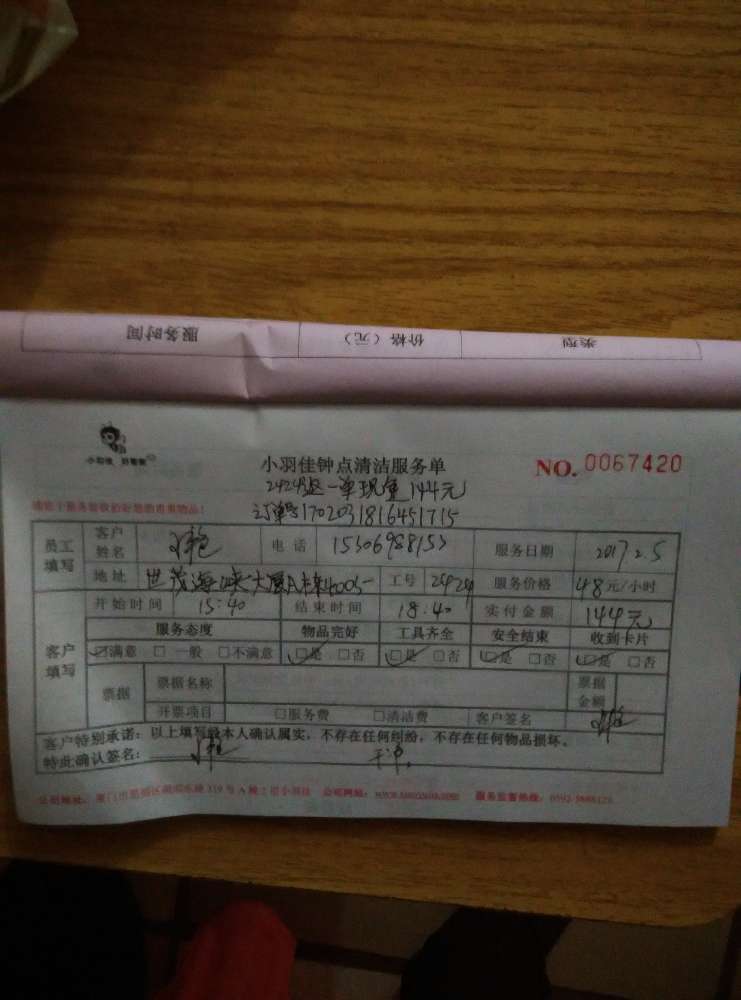 服务时间 价格（元） 类型
小羽佳 好帮手
小羽佳钟点清洁服务单 NO. 0067420
一单现金144元
订单号1702031816451715
员工填写 客户姓名 电话 15306988153 服务日期 2017.2.5
地址 世茂海峡大厦A栋4005 工号 2424 服务价格 48元/小时
客户填写 开始时间 15:40 结束时间 18:40 实付金额 144元
服务态度 物品完好 工具齐全 安全结束 收到卡片
☑满意 □一般 □不满意 ☑是 □否 ☑是 □否 ☑是 □否 ☑是 □否
票据 票据名称 票据金额
开票项目 □服务费 □清洁费 客户签名
客户特别承诺：以上填写经本人确认属实，不存在任何纠纷，不存在任何物品损坏。
特此确认签名：
公司网址： 服务监督热线：